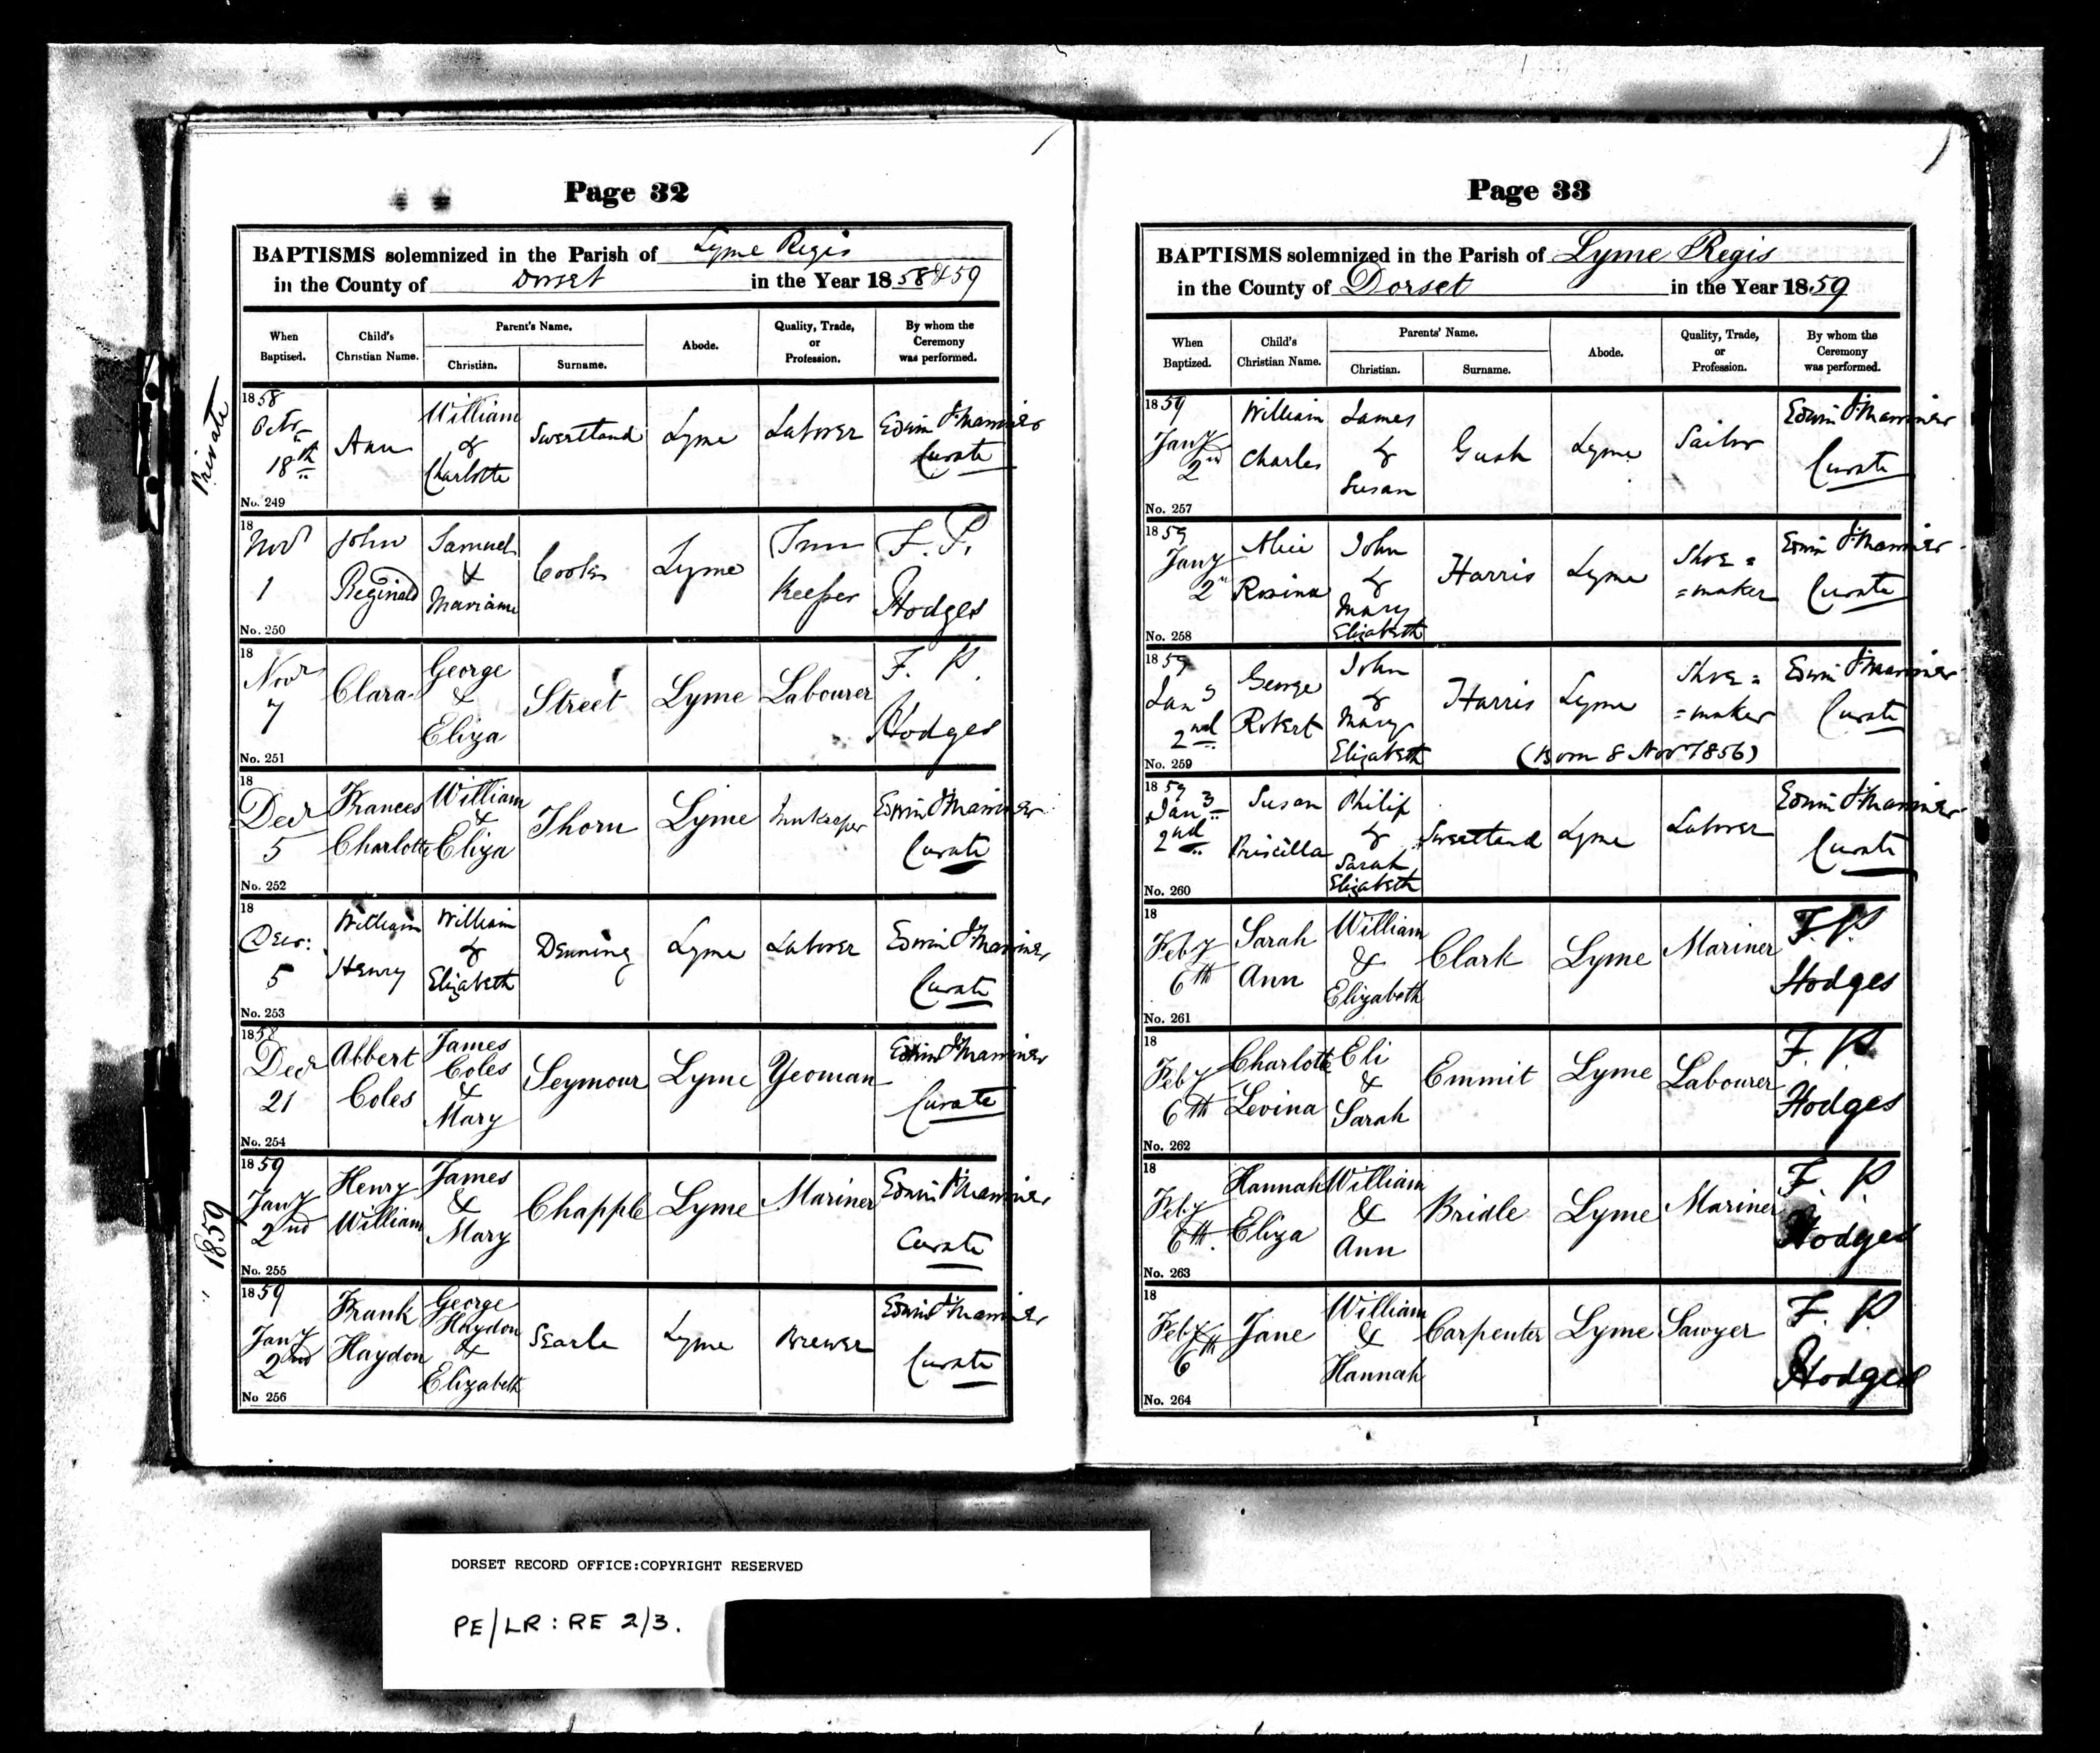 Page 32
BAPTISMS solemnized in the Parish of Lyme Regis
in the County of Dorset in the Year 1858 & 59
When Baptised. Child's Christian Name. Parent's Name. Christian. Surname. Abode. Quality, Trade, or Profession. By whom the Ceremony was performed.
Private
1858 Octr 18th Ann William & Charlotte Sweetland Lyme Laborer Edwin Curate
No. 249
18 Novr 1 John Reginald Samuel & Mariane Lyme Inn Keeper F. P. Hodges
No. 250
18 Novr 7 Clara George & Eliza Street Lyme Labourer F. P. Hodges
No. 251
18 Decr 5 Frances Charlotte William & Eliza Thorn Lyme Innkeeper Edwin Curate
No. 252
18 Decr: 5 William Henry William & Elizabeth Denning Lyme Laborer Edwin Curate
No. 253
1858 Decr 21 Albert Coles James Coles & Mary Seymour Lyme Yeoman Edwin Curate
No. 254
1859
1859 Jany 2nd Henry William James & Mary Chapple Lyme Mariner Edwin Curate
No. 255
1859 Jany 2nd Frank Haydon George Haydon & Elizabeth Searle Lyme Brewer Edwin Curate
No 256
Page 33
BAPTISMS solemnized in the Parish of Lyme Regis
in the County of Dorset in the Year 1859
When Baptized. Child's Christian Name. Parents' Name. Christian. Surname. Abode. Quality, Trade, or Profession. By whom the Ceremony was performed.
1859 Jany 2nd William Charles James & Susan Gush Lyme Sailor Edwin Curate
No. 257
1859 Jany 2nd Alice Rosina John & Mary Elizabeth Harris Lyme Shoe= =maker Edwin Curate
No. 258
1859 Jany 2nd George Robert John & Mary Elizabeth Harris Lyme Shoe= =maker Edwin Curate
(Born 8 Novr 1856)
No. 259
1859 Jany 2nd Susan Priscilla Philip & Sarah Elizabeth Sweetland Lyme Laborer Edwin Curate
No. 260
18 Feby 6th Sarah Ann William & Elizabeth Clark Lyme Mariner F. P. Hodges
No. 261
18 Feby 6th Charlotte Levina Eli & Sarah Emmit Lyme Labourer F. P. Hodges
No. 262
18 Feby 6th. Hannah Eliza William & Ann Bridle Lyme Mariner F. P. Hodges
No. 263
18 Feby 6th Jane William & Hannah Carpenter Lyme Sawyer F. P. Hodges
No. 264
I
DORSET RECORD OFFICE:COPYRIGHT RESERVED
PE/LR : RE 2/3.